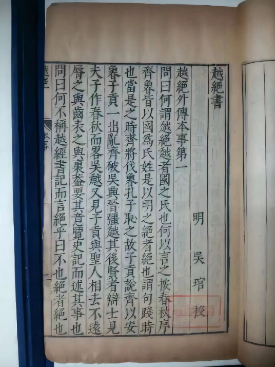 越絕書
明 吳琯 校
越絕外傳本事第一
問曰何謂越絕越者國之氏也何以言之按春秋序
齊魯皆以國為氏姓是以明之絕者絕也謂句踐時
也當是之時齊將伐魯孔子恥之故子貢說齊以安
魯子貢一出亂齊破吳興晉彊越其後賢者辯士見
夫子作春秋而畧吳越又見子貢與聖人相去不遠
脣之與齒表之與裏蓋要其意覽史記而述其事也
問曰何不稱越經書記而言絕乎曰不也絕者絕也